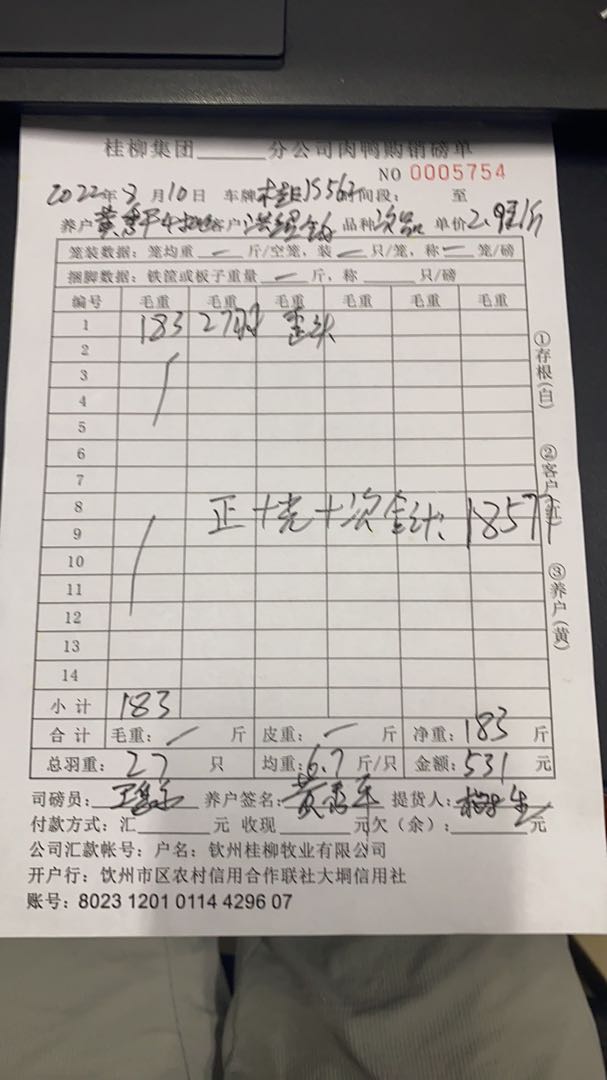 桂柳集团______分公司肉鸭购销磅单
NO 0005754
2022年3月10日 车牌 15563 时间段: 至
养户 客户 品种 次品 单价 2.9元/斤
笼装数据:笼均重 — 斤/空笼,装 — 只/笼,称 — 笼/磅
捆脚数据:铁筐或板子重量 — 斤,称 只/磅
编号 毛重 毛重 毛重 毛重 毛重 毛重
1 183 27只 歪头
2
3
4
5
6
7
8 正+壳+次合计:18577
9
10
11
12
13
14
小计 183
合计 毛重: 斤 皮重: 斤 净重:183 斤
总羽重:27 只 均重:6.7 斤/只 金额:531 元
司磅员: 养户签名: 提货人:
付款方式:汇______元 收现______元 欠(余):______元
公司汇款帐号:户名:钦州桂柳牧业有限公司
开户行:钦州市区农村信用合作联社大垌信用社
账号:8023 1201 0114 4296 07
①存根(白)
②客户(红)
③养户(黄)